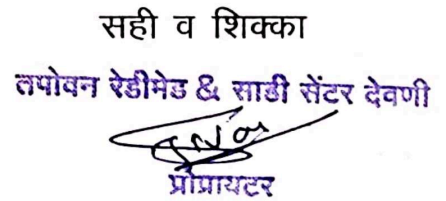 सही व शिक्का
तपोवन रेडीमेड & साडी सेंटर देवणी
प्रोप्रायटर